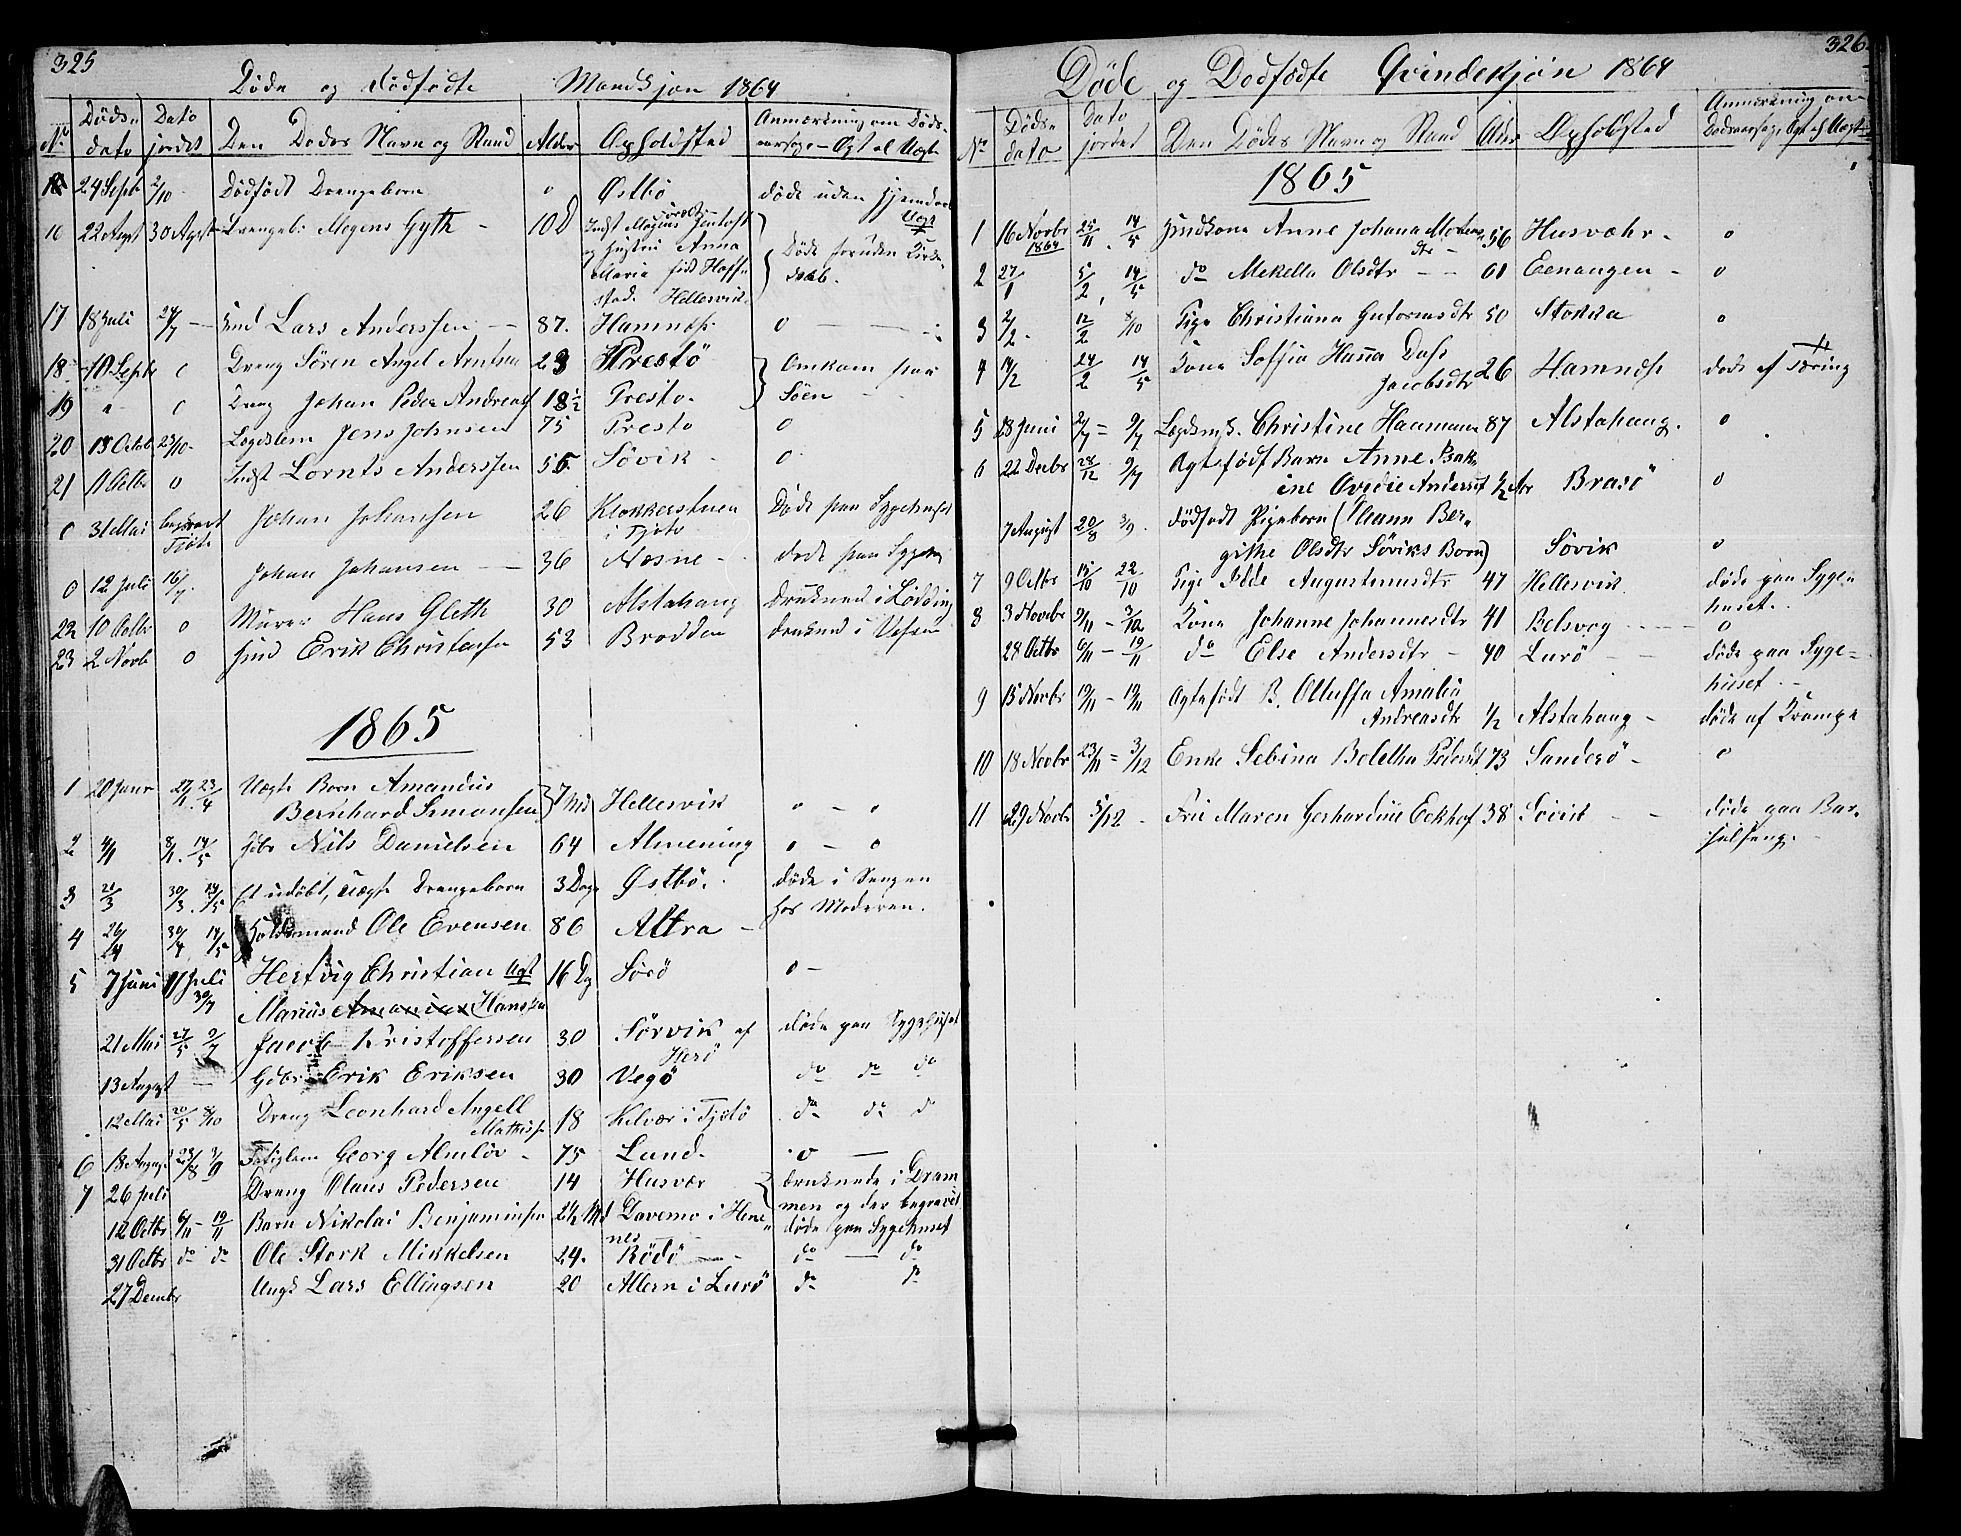 325
Døde og Dødfødte Mandkjøn 1864
No Døds-dato Dato jordet Den Dødes Navn og Stand Alder Opholdsted Anmærkning om Døds-aarsag – Ægt el. Uægt
24 Septb 2/10 Dødfødt Drengebarn o Østbø døde uden Hjemdaab
16 22 Augst 30 Augst Drengeb. Mogens Gyth 10 D Indst Magnus Jentoft
og Hustru Anna Døde foruden Kirke-
Maria fød Hoff- daab.
stad. Hellesvik
17 18 Juli 24/7 Ind Lars Anderssen 87. Hamnæs o
18 10 Septb o Dreng Sören Angel Arntsen 23 Prestö Omkom paa
19 " o Dreng Johan Peder Andreas 18½ Presto. Söen
20 13 Octob 23/10 Lægdslem Jens Johnsen 75 Presto o
21 11 Octbr o Indst Lornts Anderssen 56 Sövik o
o 31 Mai begravet Tjöt Johan Johansen 26 Klokkerstuen i Tjötö Døde paa Sygehuset
o 12 Juli 16/7 Johan Johansen 36 Næsne døde paa Sygeh
22 10 Octbr o Murer Hans Gleth 30 Alstahaug Druknede i Lödding
23 2 Novb o Ind Erik Christensen 53 Brodden druknede i Vefsen
1865
1 20 Janr 27/1. 23/4 Uægte Barn Amandus
Bernhard Simonsen 7 Md Hellesvik o – o
2 4/1 8/1. 14/5 Gdbr Nils Danielsen 64 Almening o – o
3 21/3 30/3. 14/5 Et udøbt, uægte Drengebarn 3 Dage Østbö. døde i Sengen
hos Moderen.
4 26/4 30/4 14/5 Holdsmand Ole Evensen 86 Altra
5 7 Juni 11 Juli 30/7 Hertvig Christian Ægt 16 Dg Sörö o
Marius Amanius Hansen
21 Mai 27/5 9/7 Jacob Kristoffersen 30 Sörvik af Herö døde paa Sygehuset
13 Augst — Gdbr Erik Eriksen 30 Vegö do do do
12 Mai 20/5 8/10 Dreng Leonhard Angell
Mathiss 18 Kelvær i Tjötö do do do
6 18 Augst 23/8 3/9 Fatiglem Georg Almlöv 75 Lund. o
7 26 Juli Dreng Olaus Pedersen 14 Husvær druknede i Dram
men og der begravet
12 Octbr 6/11 – 19/11 Barn Nikolai Benjaminsen 2½ Md Davemo i Hem=nes døde paa Sygehuset
31 Octbr do do Ole Stork Mikkelsen 24. Rödö do — do
27 Decmbr Ungk Lars Ellingsen 20 Altern i Lurö do do
326
Döde og Dødfødte Qvindekjøn 1864
No Døds-dato Dato jordet Den Dødes Navn og Stand Alder Opholdsted Anmærkning om Dødsaarsag, Ægt el Uægt
1865
1 16 Novbr 1864 25/11. 14/5 Indkone Anne Johana Mortens
dtr 56 Husvæhr o
2 27/1 5/2, 14/5 do Mekella Olsdtr 61 Eenangen o
3 2/2. 12/2 8/10 Pige Christiana Gutormsdtr 50 Stokka o
4 14/2 24/2 14/5 Kone Soffia Hanna Dass
Jacobsdtr 26 Hamnæs døde af Tæring
5 28 Juni 2/7 = 9/7 Lægdsm.k. Christine Haumann 87 Alstahaug. o
6 22 Decbr 28/12 9/7 Ægtefødt Barn Anne Bak-
ine Ovedie Andersd ½ Ar Brasö o
7 August 20/8 3/9. dødfødt Pigebarn (Oleann Ber-
githe Olsdtr Söviks Barn) Sövik o
7 9 Octbr 15/10 22/10 Pige Ilde Augustinusdtr 47 Hellesvik døde paa Syge-
huset.
8 3 Novbr 9/11 – 3/12 Kone Johanne Johannesdtr 41 Belsvog o
28 Octbr 6/11 – 19/11 do Else Andersdtr 40 Lurö døde paa Syge-
huset.
9 15 Novbr 19/11 – 19/11 Ægtefødt B. Olluffa Amalia
Andreasdtr ½ Alstahaug døde af Krampe
10 18 Novbr 23/11 = 3/12 Enke Sebina Boletha Pedersd 73 Sanderö o
11 29 Novbr 5/12 Fru Maren Gerhardine Eckhof 38 Sövik døde paa Bar-
selseng.